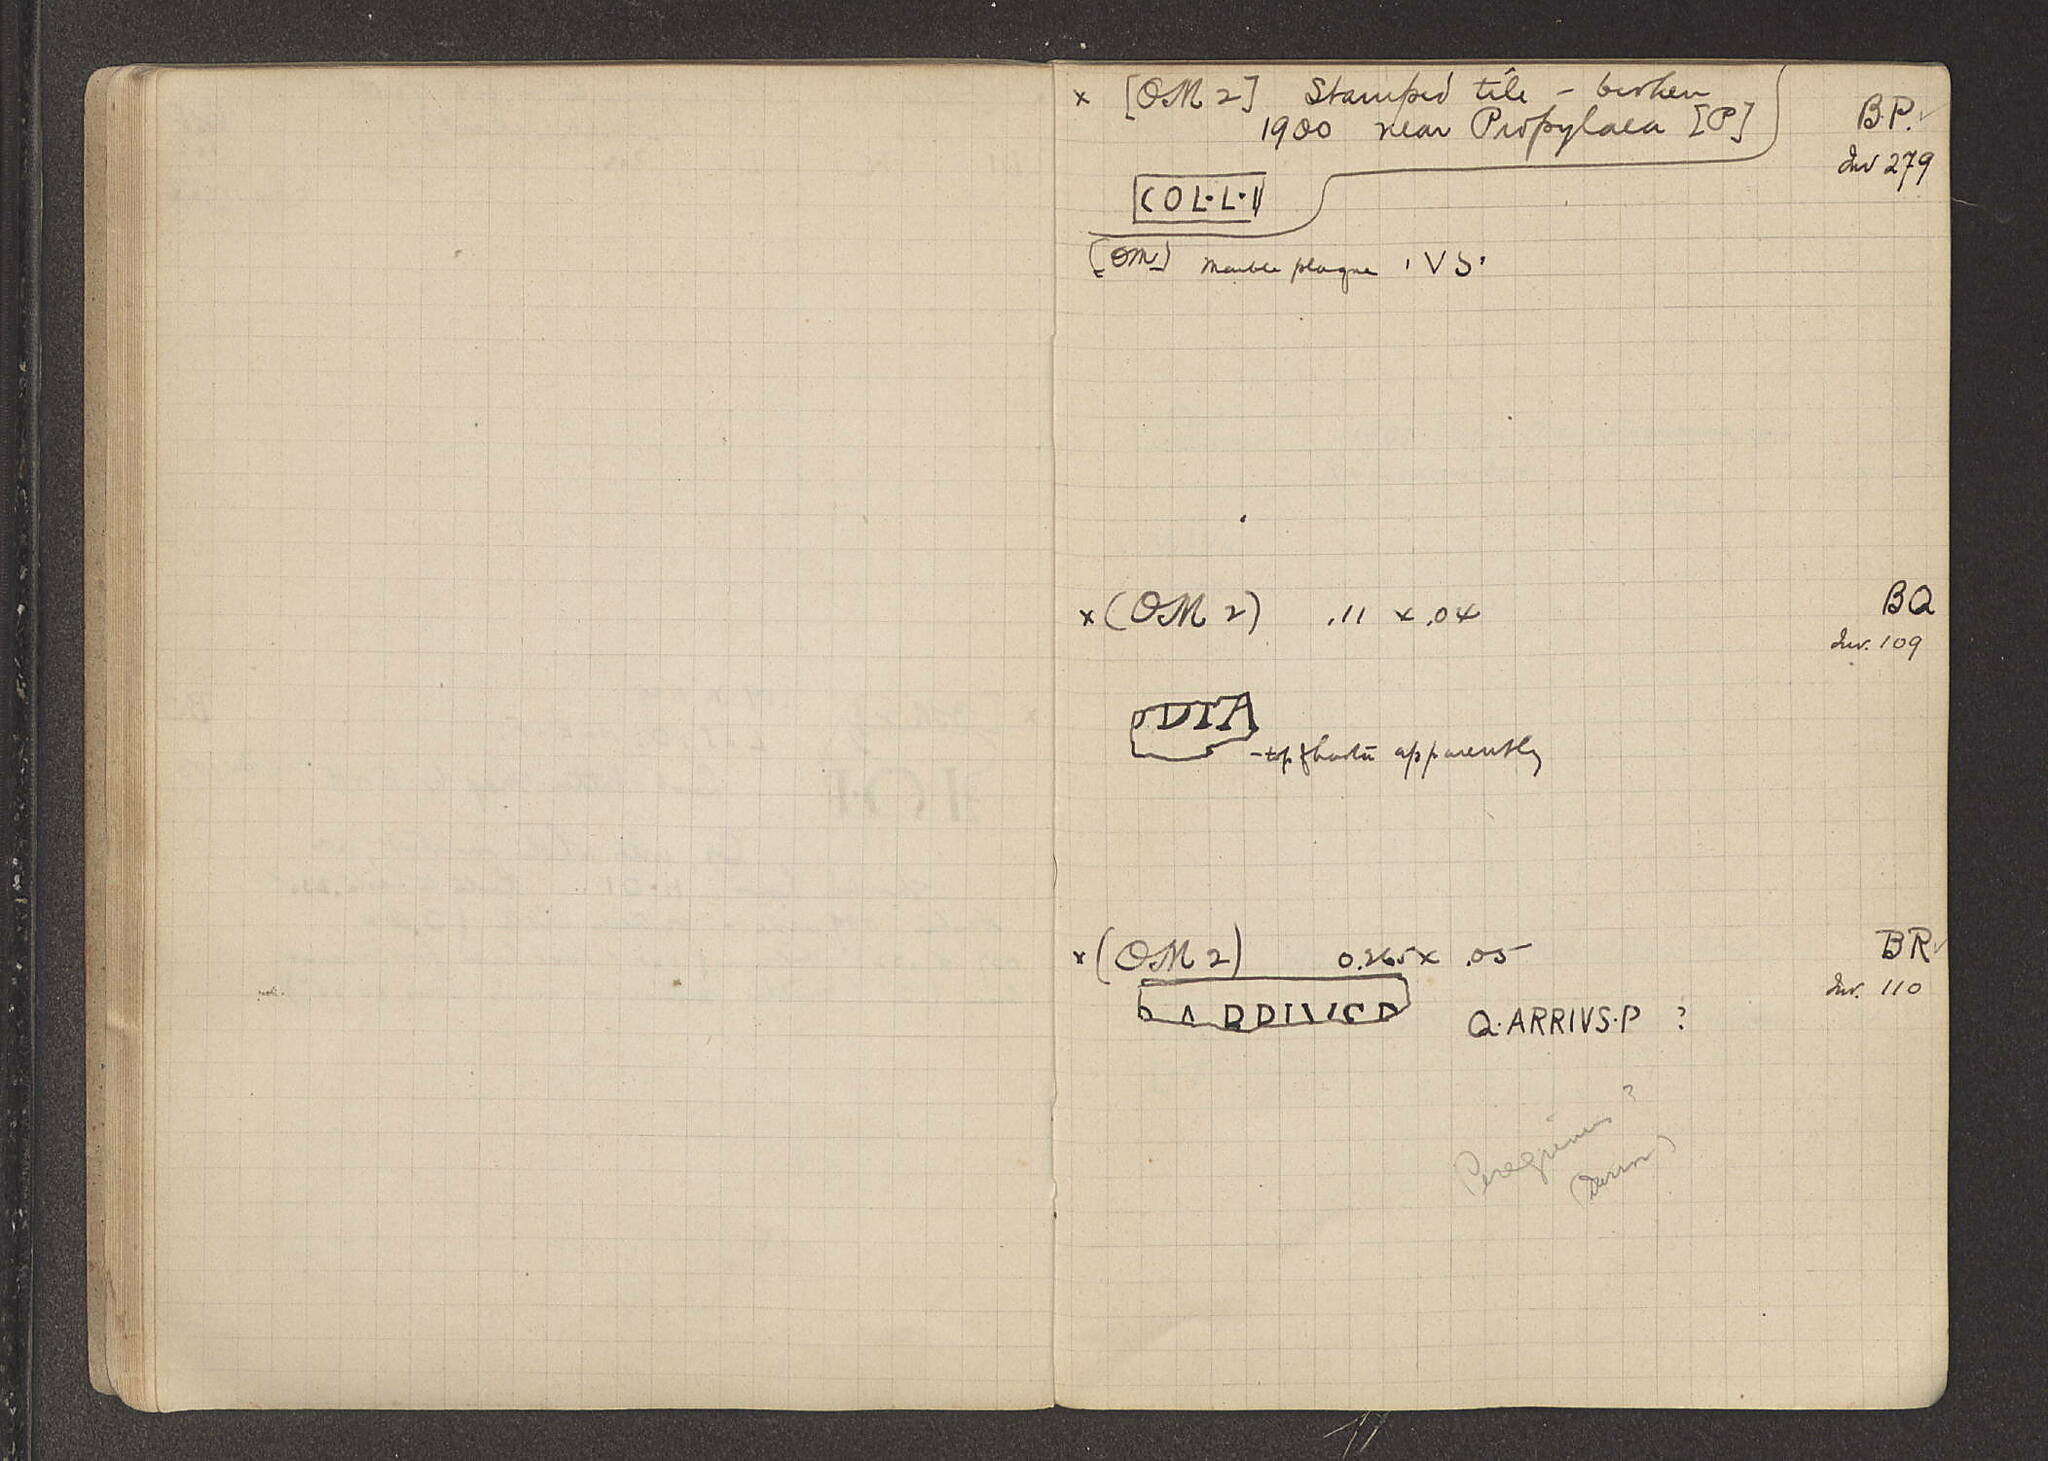 x [OM 2] Stamped tile – broken
1900 near Propylaea [P]
B.P. ✓
Inv 279
COL·L·I
[OM] Marble plaque ' V S '
x (OM 2) .11 x .04
BQ
Inv. 109
DIA
– top & bottom apparently
x (OM 2) 0.265 x .05
BR ✓
Inv. 110
Q·ARRIVS·P ?
Peregrinus ?